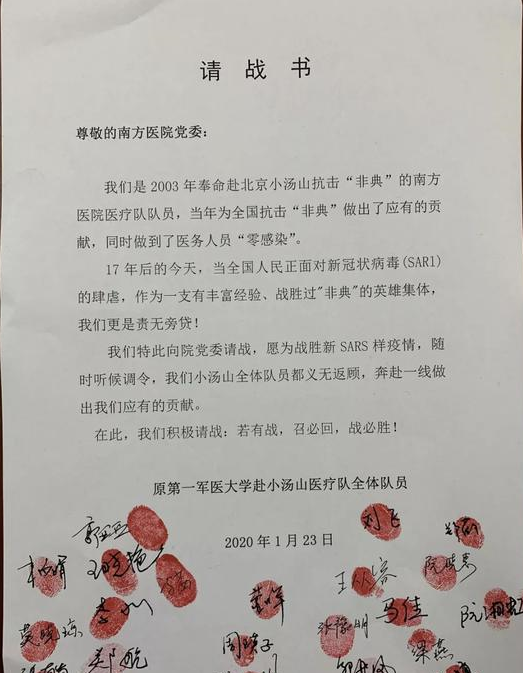 请战书
尊敬的南方医院党委：
我们是 2003 年奉命赴北京小汤山抗击“非典”的南方
医院医疗队队员，当年为全国抗击“非典”做出了应有的贡
献，同时做到了医务人员“零感染”。
17 年后的今天，当全国人民正面对新冠状病毒(SARI)
的肆虐，作为一支有丰富经验、战胜过"非典"的英雄集体，
我们更是责无旁贷！
我们特此向院党委请战，愿为战胜新 SARS 样疫情，随
时听候调令，我们小汤山全体队员都义无返顾，奔赴一线做
出我们应有的贡献。
在此，我们积极请战：若有战，召必回，战必胜！
原第一军医大学赴小汤山医疗队全体队员
2020 年 1 月 23 日
刘飞
马佳